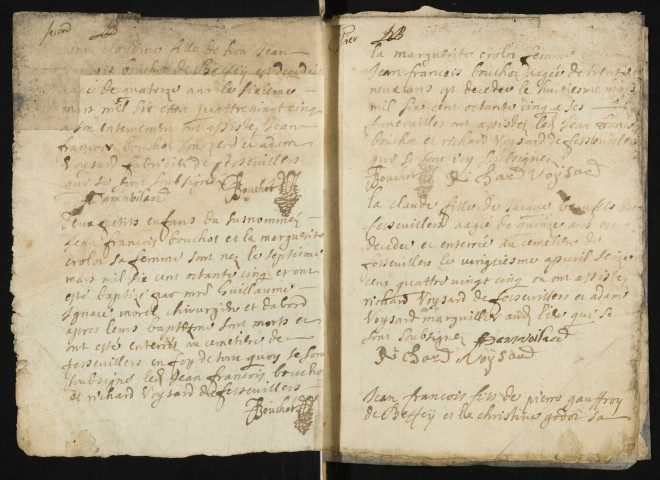 second
claudine fille de hon Jean
bouchot de Beffey decedée
aagee de quatorze ans le sixieme
mars mil six cent quattrevingt cinq
a son enterrement ont assistez Jean
francois bouchot son pere et adam
Voysard de fessevillers
qui se sont soubsignez
Bouchot
Deux petits enfans du susnommez
Jean francois bouchot et la marguerite
crolot sa femme sont nez le septieme
mars mil six cent octante cinq et ont
esté baptisez par mre Guillaume
Ignace morel chirurgien et dabord
apres leurs baptesme sont morts et
ont esté enterrez au cemetiere de
fessevillers en foy de tout quoy se sont
soubsigné led Jean francois bouchot
et richard Voysard de fessevillers
Bouchot
la marguerite crolot femme
Jean francois bouchot aagée de trente
neuf ans est decedee le huitieme mars
mil six cent octante cinq a ses
funerailles ont assistez led Jean francois
bouchot et richard Voysard de fessevillers
qui se sont icy soubsignez
Bouchot Richard Voysard
la claude fille de Jacque
fessevillers aagée de quinze ans est
decedee et enterrée au cemetiere de
fessevillers le vingtiesme apvril seize
cent quattre vingt cinq ou ont assistez
richard Voysard de fessevillers et adam
Voysard marguillier aud lieu qui se
sont soubsignez
Richard Voysard
Jean francois fils de pierre gauffroy
de Beffey et la christine godot sa